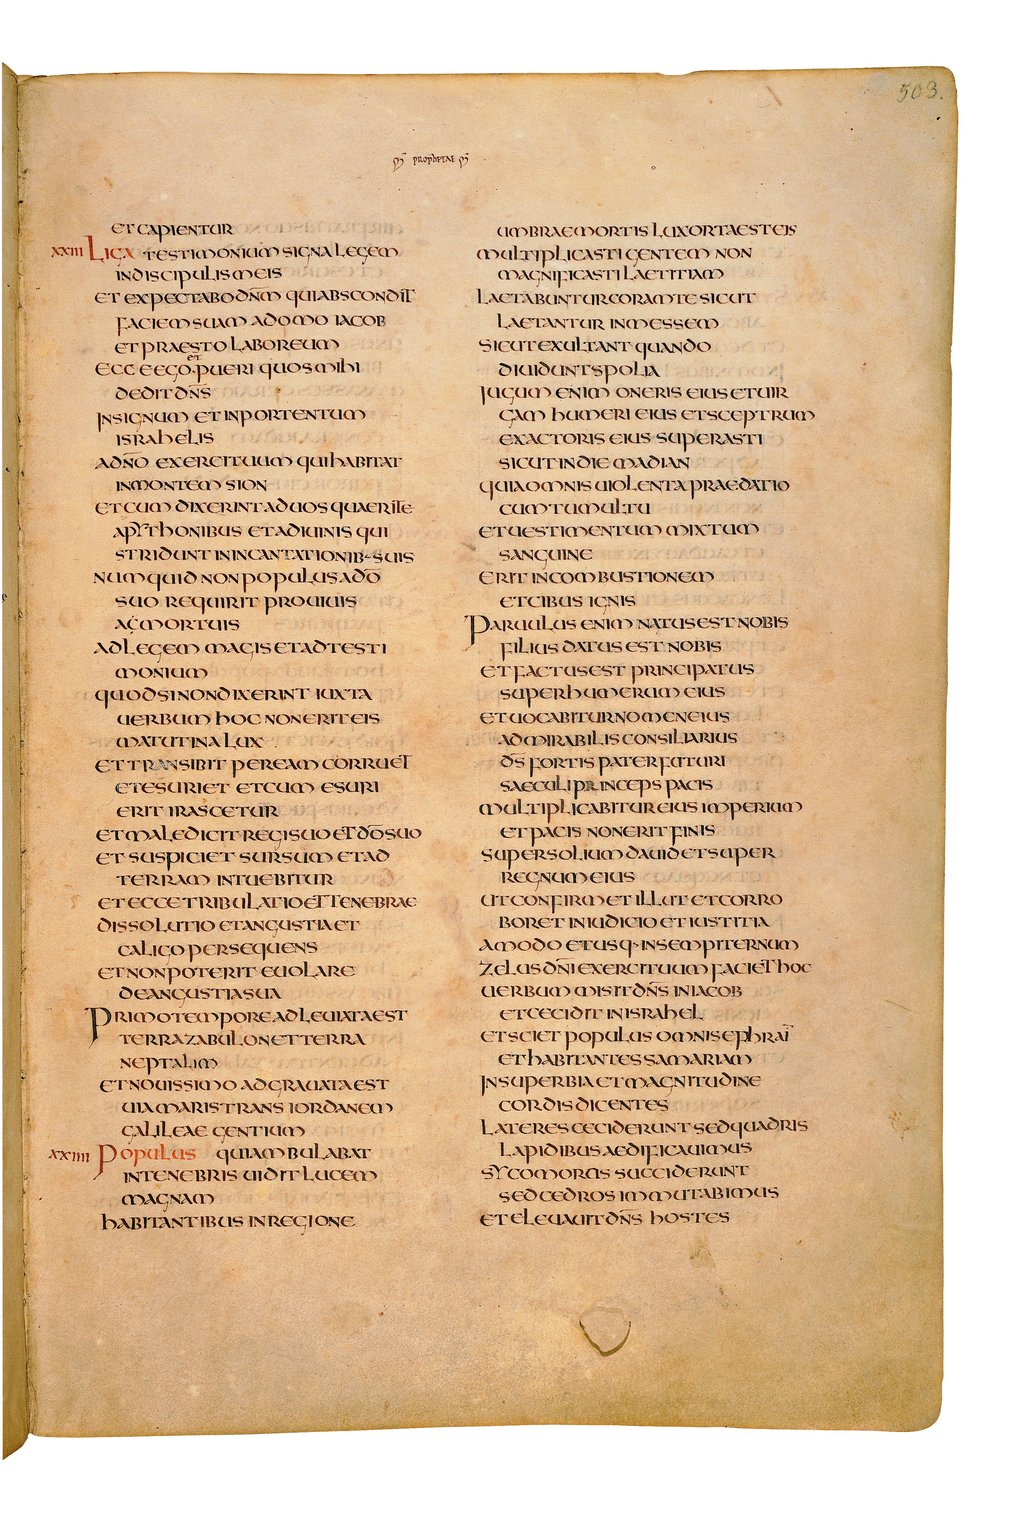 503.
PROPHETAE
ET CAPIENTUR
XXIII LIGA TESTIMONIUM SIGNA LEGEM
IN DISCIPULIS MEIS
ET EXPECTABO DN̄M QUI ABSCONDIT
FACIEM SUAM A DOMO IACOB
ET PRAESTOLABOR EUM
ECCE EGO ET PUERI QUOS MIHI
DEDIT DN̄S
IN SIGNUM ET IN PORTENTUM
ISRAHELIS
A DN̄O EXERCITUUM QUI HABITAT
IN MONTEM SION
ET CUM DIXERINT AD UOS QUAERITE
A PYTHONIBUS ET A DIUINIS QUI
STRIDUNT IN INCANTATIONIB· SUIS
NUMQUID NON POPULUS A DŌ
SUO REQUIRIT PRO UIUIS
AC MORTUIS
AD LEGEM MAGIS ET AD TESTI
MONIUM
QUOD SI NON DIXERINT IUXTA
UERBUM HOC NON ERIT EIS
MATUTINA LUX
ET TRANSIBIT PER EAM CORRUET
ET ESURIET ET CUM ESURI
ERIT IRASCETUR
ET MALEDICIT REGI SUO ET DŌ SUO
ET SUSPICIET SURSUM ET AD
TERRAM INTUEBITUR
ET ECCE TRIBULATIO ET TENEBRAE
DISSOLUTIO ET ANGUSTIA ET
CALIGO PERSEQUENS
ET NON POTERIT EUOLARE
DE ANGUSTIA SUA
PRIMO TEMPORE ADLEUIATA EST
TERRA ZABULON ET TERRA
NEPTALIM
ET NOUISSIMO ADGRAUATA EST
UIA MARIS TRANS IORDANEM
GALILEAE GENTIUM
XXIIII POPULUS QUI AMBULABAT
IN TENEBRIS UIDIT LUCEM
MAGNAM
HABITANTIBUS IN REGIONE
UMBRAE MORTIS LUX ORTA EST EIS
MULTIPLICASTI GENTEM NON
MAGNIFICASTI LAETITIAM
LAETABUNTUR CORAM TE SICUT
LAETANTUR IN MESSEM
SICUT EXULTANT QUANDO
DIUIDUNT SPOLIA
IUGUM ENIM ONERIS EIUS ET UIR
GAM HUMERI EIUS ET SCEPTRUM
EXACTORIS EIUS SUPERASTI
SICUT IN DIE MADIAN
QUIA OMNIS UIOLENTA PRAEDATIO
CUM TUMULTU
ET UESTIMENTUM MIXTUM
SANGUINE
ERIT IN COMBUSTIONEM
ET CIBUS IGNIS
PARUULUS ENIM NATUS EST NOBIS
FILIUS DATUS EST NOBIS
ET FACTUS EST PRINCIPATUS
SUPER HUMERUM EIUS
ET UOCABITUR NOMEN EIUS
ADMIRABILIS CONSILIARIUS
DS̄ FORTIS PATER FUTURI
SAECULI PRINCEPS PACIS
MULTIPLICABITUR EIUS IMPERIUM
ET PACIS NON ERIT FINIS
SUPER SOLIUM DAUID ET SUPER
REGNUM EIUS
UT CONFIRMET ILLUT ET CORRO
BORET IN IUDICIO ET IUSTITIA
AMODO ET USQ· IN SEMPITERNUM
ZELUS DN̄I EXERCITUUM FACIET HOC
UERBUM MISIT DN̄S IN IACOB
ET CECIDIT IN ISRAHEL
ET SCIET POPULUS OMNIS EPHRAI̅
ET HABITANTES SAMARIAM
IN SUPERBIA ET MAGNITUDINE
CORDIS DICENTES
LATERES CECIDERUNT SED QUADRIS
LAPIDIBUS AEDIFICAUIMUS
SYCOMOROS SUCCIDERUNT
SED CEDROS IMMUTABIMUS
ET ELEUAUIT DN̄S HOSTES